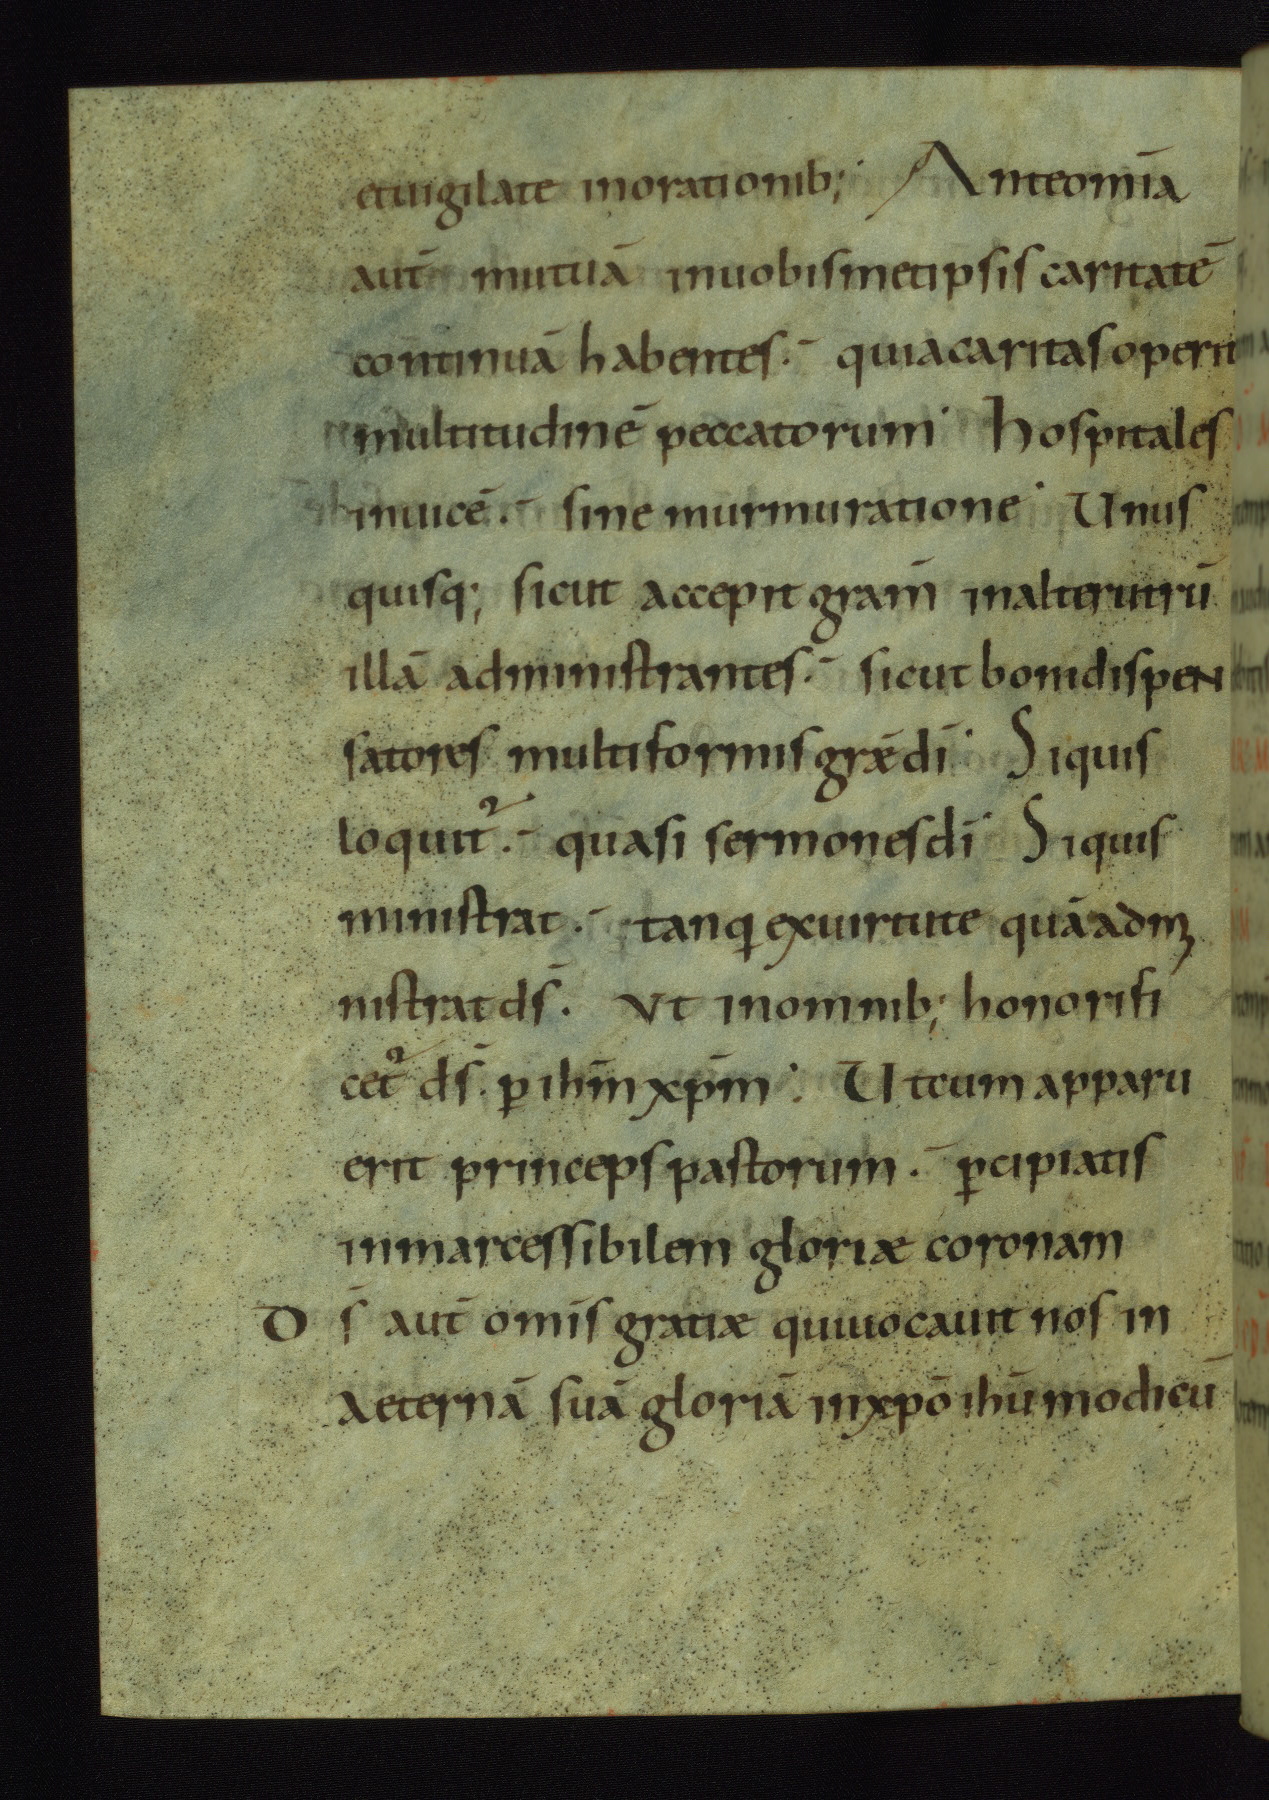 etuigilate inorationib; Anteomīa
aut̄ mutuā inuobismetipsis caritatē
continuā habentes. quiacaritasoperit
multitudinē peccatorum. hospitales
inuicē. sine murmuratione. Unus
quisq; sicut accepit grām inalterutrū
illā administrantes. sicut bonidispen
satores multiformisgrædī. Siquis
loquit᷑. quasi sermonesdī. Siquis
ministrat. tanqꝫexuirtute quāadmi
nistratds̄. Vt inomnib; honorifi
cet᷑ ds̄. ꝑ ihm̄xpm̄. Utcum apparu
erit princepspastorum. ꝑcipiatis
inmarcessibilem gloriæ coronam
Ds̄ aut̄ omīs gratiæ quiuocauit nos in
aeternā suā gloriā inxpō ihū modicū